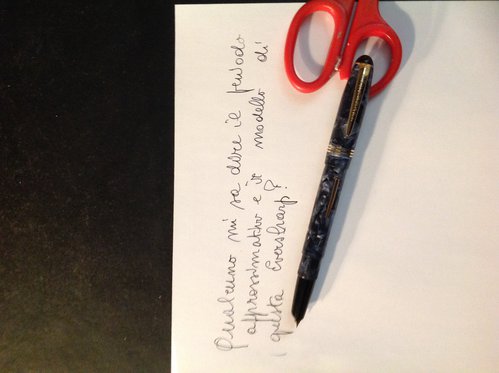 Qualcuno mi sa dire il periodo
approssimativo e il modello di
questa Eversharp?